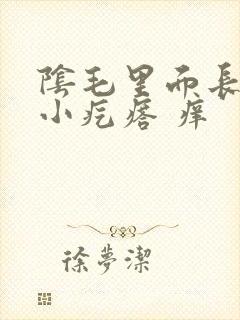 陰毛里而長
小疙瘩 癢
徐夢潔